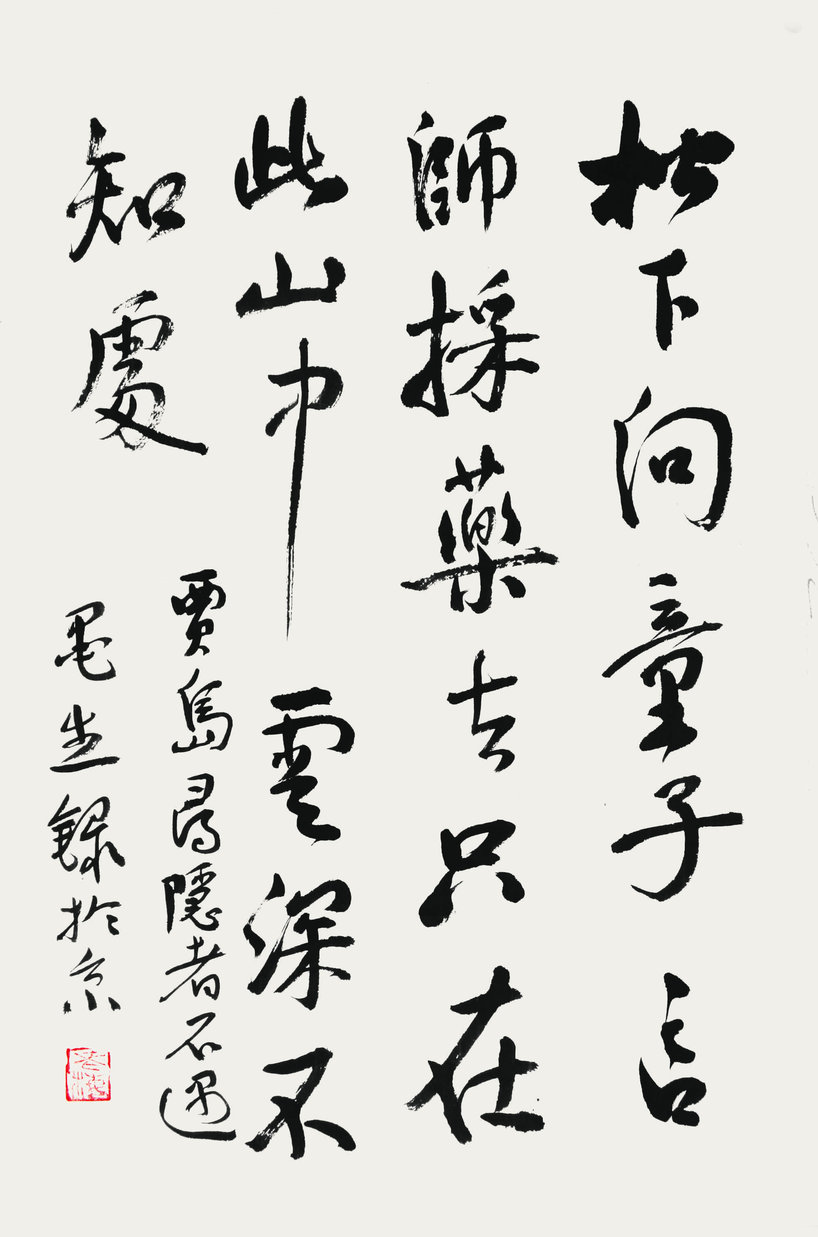 松下问童子言
師採藥去只在
此山中雲深不
知處
賈島尋隱者不遇
生錄於京